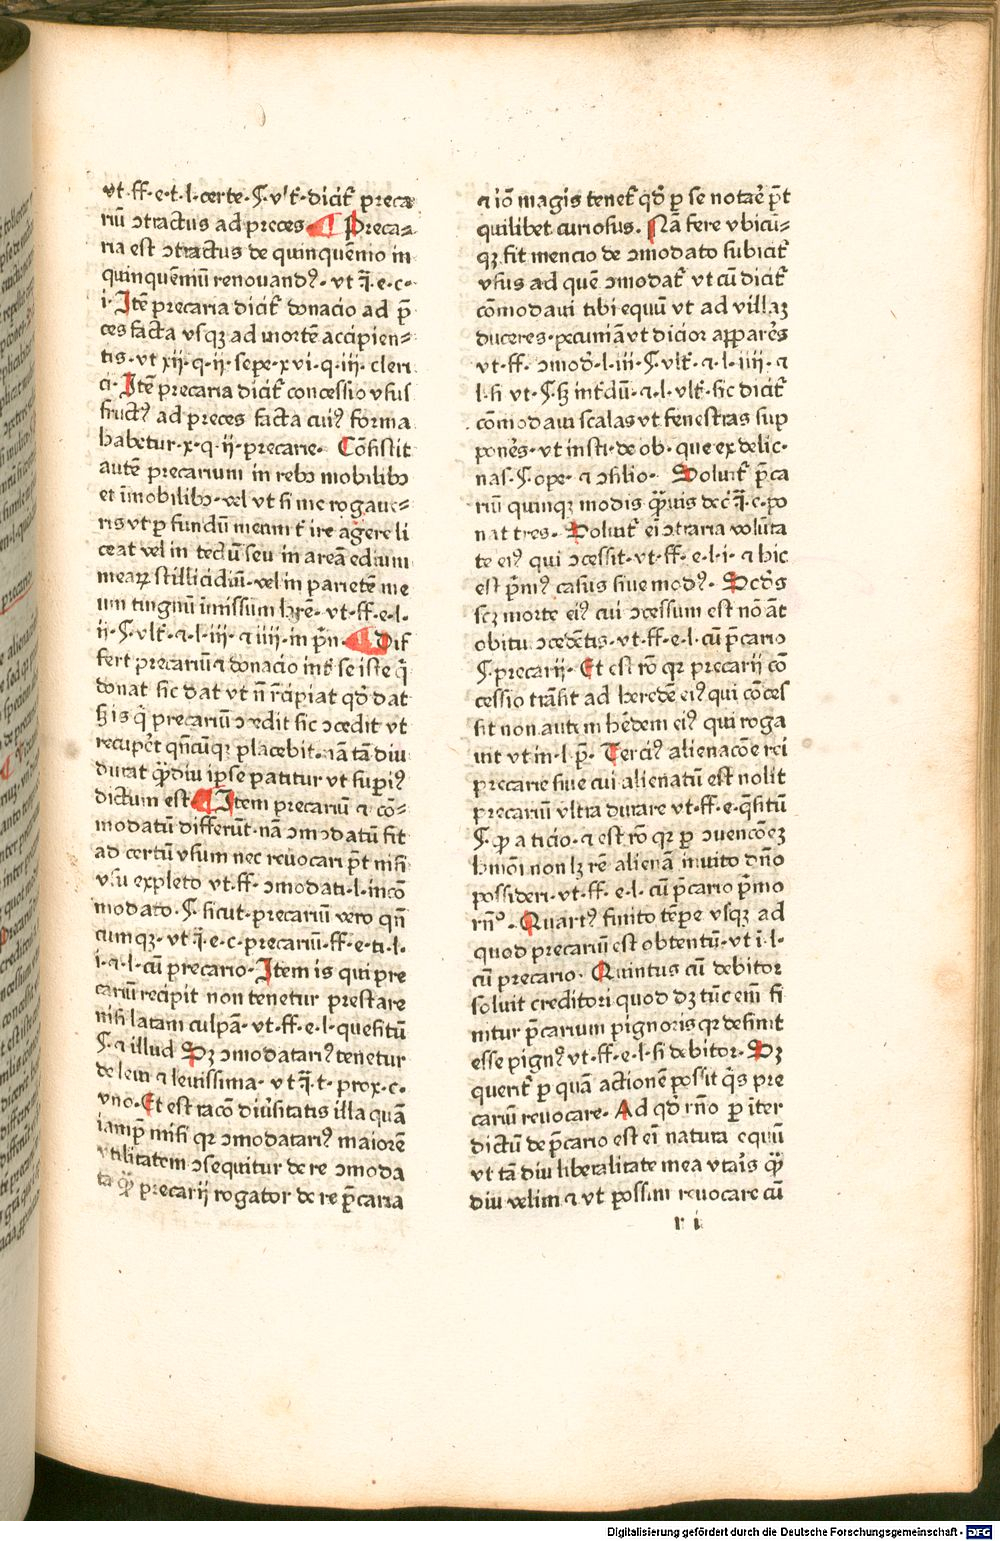 vt·ff·e·t·l·certe·§·vlt̄·dicit̄ preca
riū ↄtractus ad preces· ¶ Preca⸗
ria est ↄtractus de quinquēnio in
quinquēniū renouandꝰ·vt q̄·e·c·
i·Itē precaria dicit̄ donacio ad p̄
ces facta vsqꝫ ad mortē accipien⸗
tis·vt xij·q·ij·sepe·xvi·q·iij·cleri
ci·Itē precaria dicit̄ concessio vsus
fructꝰ ad preces facta cuiꝰ forma
habetur·x·q·ij·precarie· Cōsistit
autē precarium in rebꝰ mobilibꝰ
et īmobilibꝰ·vel vt si me rogaue⸗
ris vt p̲ fundū meum t̄ ire agere li
ceat vel in tectū seu in areā edium
meaꝝ stillicidiū·vel in parietē me
um tingnū īmissum hr̄e·vt·ff·e·l·
ij·§·vlt̄·⁊·l·iij·⁊ iiij·in p̄n· ¶ Dif
fert precariū ⁊ donacio int̄ se iste q̄
donat sic dat vt nō r̄cipiat qd̄ dat
Sꝫ is q̄ precariū ↄcedit sic ↄcedit vt
recup̲et qn̄cūqꝫ placebit·nā tā diu
durat q̄ꝫdiu ip̄se patitur vt sup̲iꝰ
dictum est ¶ Item precariū ⁊ cō⸗
modatū differūt·nā ↄmodatū fit
ad certū vsum nec reuocari p̄t nisi
vsu expleto vt·ff·ↄmodati·l·in cō
modato·§·sicut·precariū vero qn̄
cumqꝫ·vt q̄·e·c·precariū·ff·e·ti·l·
i·⁊·l·cū precario·Item is qui pre
cariū recipit non tenetur prestare
nisi latam culpā·vt·ff·e·l·quesitū
§·⁊ illud Sꝫ ↄmodatariꝰ tenetur
de leui ⁊ leuissima·vt q̄·t·prox·c·
vno·Et est racō diūsitatis illa quā
iamp̄ misi qꝛ ↄmodatariꝰ maiorē
vtilitatem ↄsequitur de re ↄmoda
ta q̄ꝫ precarij rogator de re p̄caria
⁊ iō magis tenet̄ qd̄ p̲ se notar̄e p̄t
quilibet curiosus. Nā fere vbicū⸗
qꝫ fit mencio de ↄmodato subicit̄
vsus ad quē ↄmodat̄ vt cū dicit̄
cōmodaui tibi equū vt ad villaꝫ
duceres·pecuniā vt dicior app̲arēs
vt·ff·ↄmod̄·l·iii·§·vlt̄·⁊·l·iiij·⁊
l·si vt·§·Sꝫ int̄dū·⁊·l·vlt̄·sic dicit̄
cōmodaui scalas vt fenestras sup
ponēs·vt insti·de ob·que ex delic·
nas·§·ope·⁊ ↄsilio· Soluit̄ p̄ca
riū quinqꝫ modis q̄ꝫuis dec̄ q̄·c·po
nat tres· Soluit̄ eī ↄtraria volūta
te eiꝰ qui ↄcessit·vt·ff·e·l·i·⁊ hic
est p̄mꝰ casus siue modꝰ· Scd̄s
scꝫ morte eiꝰ cui ↄcessum est nō āt
obitu ↄcedētis·vt·ff·e·l·cū p̄cario
§·precarij·Et est rō qꝛ precarij cō
cessio trāsit ad heredē eiꝰ qui cōces
sit non autem h̄edem eiꝰ qui roga
uit vt in·l·p̄· Terciꝰ alienacōe rei
precarie siue cui alienatū est nolit
precariū vltra durare vt·ff·e·q̄sitū
§·q̄ a ticio·⁊ est rō qꝛ p̲ ↄuencōeꝫ
hmōi non lꝫ rē alienā inuito dn̄o
possideri·vt·ff·e·l·cū p̄cario p̄mo
rn̄º· Quartꝰ finito tēpe vsqꝫ ad
quod precariū est obtentū·vt i·l·
cū precario· Quintus cū debitor
soluit creditori quod dꝫ tūc em̄ fi
nitur p̄carium pignoris qꝛ desinit
esse pignꝰ vt·ff·e·l·si debitor· Sꝫ
querit̄ p̲ quā actionē possit q̄s pre
cariū reuocare· Ad qd̄ rn̄o p̲ īter
dictū de p̄cario est eī natura equū
vt tā diu liberalitate mea vtaīs q̄ꝫ
diu velim ⁊ vt possim reuocare cū
r i
Digitalisierung gefördert durch die Deutsche Forschungsgemeinschaft - DFG